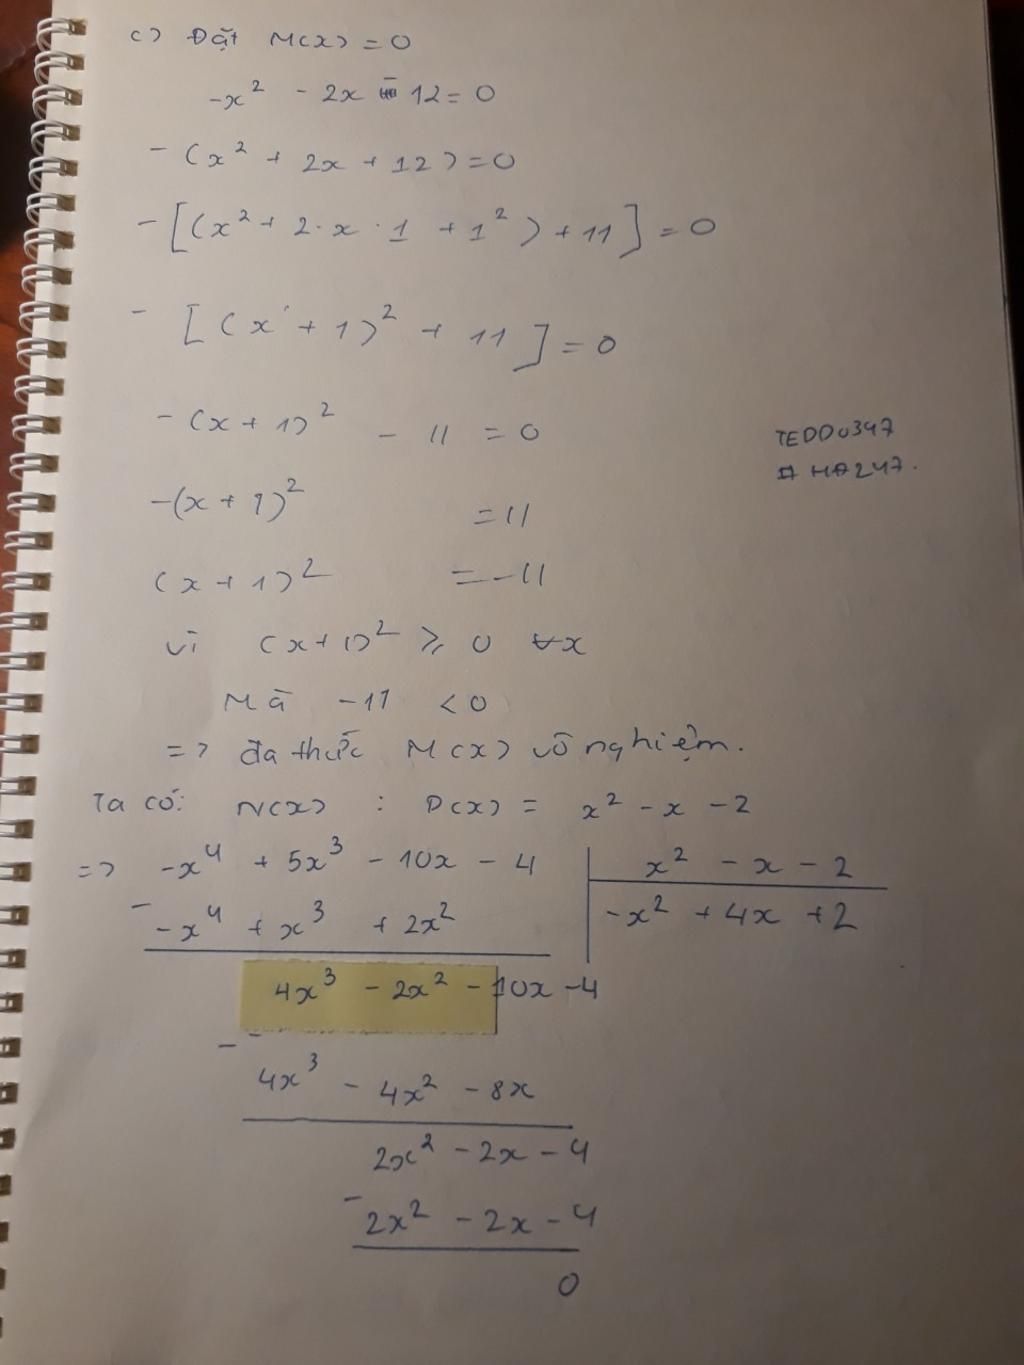 c) Đặt M(x) = 0
-x² - 2x - 12 = 0
- (x² + 2x + 12) = 0
- [(x² + 2·x·1 + 1²) + 11] = 0
- [(x + 1)² + 11] = 0
- (x + 1)² - 11 = 0
-(x + 1)² = 11
(x + 1)² = -11
vì (x + 1)² ⩾ 0 ∀x
Mà -11 < 0
=> đa thức M(x) vô nghiệm.
TEDDU347
# HA247.
Ta có: N(x) : P(x) = x² - x - 2
=> -x⁴ + 5x³ - 10x - 4 x² - x - 2
- -x⁴ + x³ + 2x² -x² + 4x + 2
4x³ - 2x² - 10x - 4
- 4x³ - 4x² - 8x
2x² - 2x - 4
- 2x² - 2x - 4
0